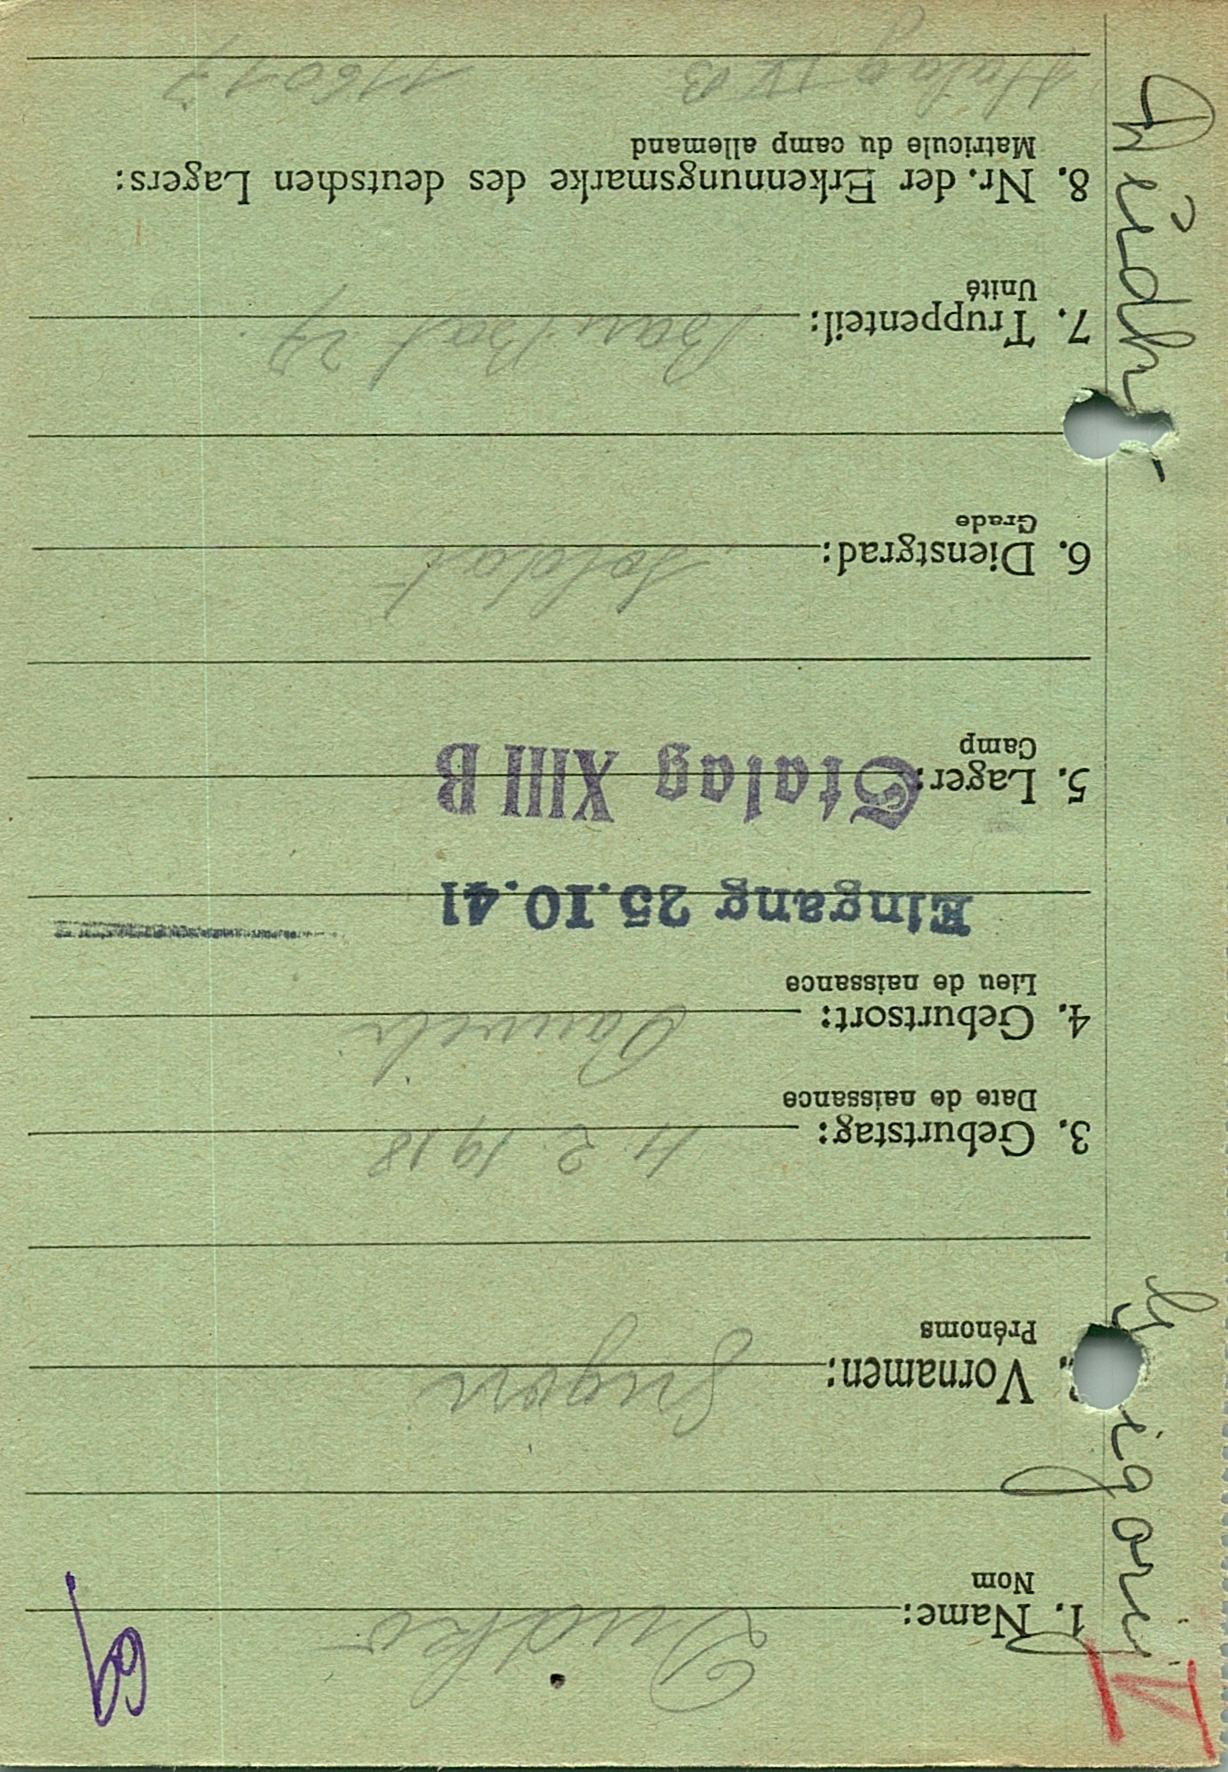 1. Name: Dudko
Nom
Vornamen: Grigori
Prénoms
3. Geburtstag: 11. 2. 1918
Date de naissance
4. Geburtsort:
Lieu de naissance
Eingang 25.10.41
5. Lager: Stalag XIII B
Camp
6. Dienstgrad: Soldat
Grade
7. Truppenteil: Bau Bat 27
Unité
8. Nr. der Erkennungsmarke des deutschen Lagers:
Matricule du camp allemand
Stalag IV B 116017